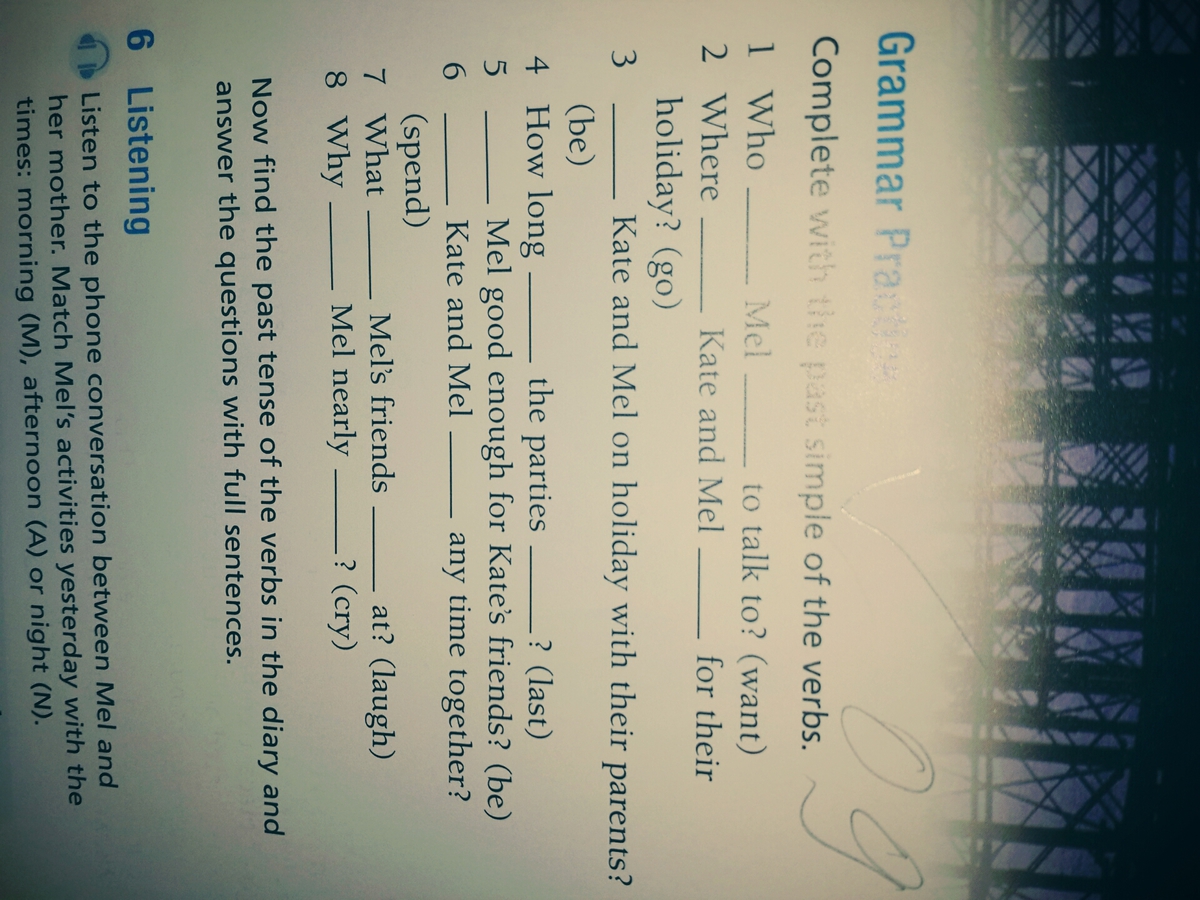 Grammar Practice
Complete with the past simple of the verbs.
1 Who ______ Mel ______ to talk to? (want)
2 Where ______ Kate and Mel ______ for their
holiday? (go)
3 ______ Kate and Mel on holiday with their parents?
(be)
4 How long ______ the parties ______? (last)
5 ______ Mel good enough for Kate's friends? (be)
6 ______ Kate and Mel ______ any time together?
(spend)
7 What ______ Mel's friends ______ at? (laugh)
8 Why ______ Mel nearly ______? (cry)
Now find the past tense of the verbs in the diary and
answer the questions with full sentences.
6 Listening
Listen to the phone conversation between Mel and
her mother. Match Mel's activities yesterday with the
times: morning (M), afternoon (A) or night (N).